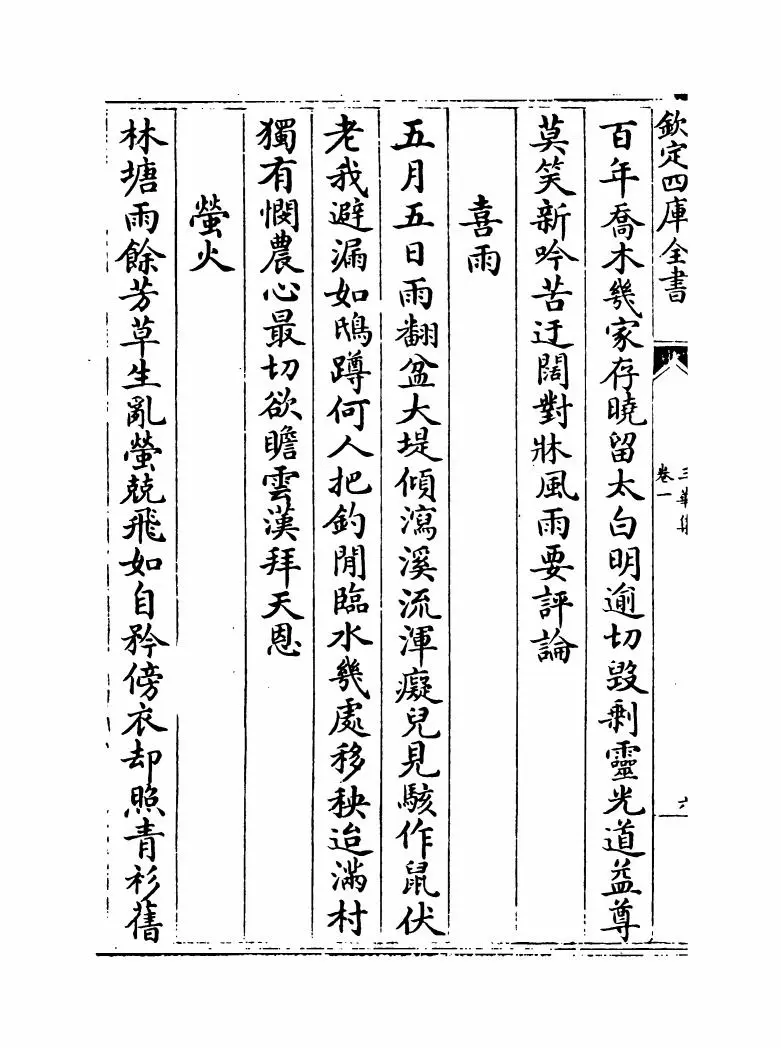 欽定四庫全書
三華集
卷一
六
百年喬木幾家存曉留太白明逾切毀剩靈光道益尊
莫笑新吟苦迂闊對牀風雨要評論
喜雨
五月五日雨翻盆大堤傾瀉溪流渾癡兒見駭作鼠伏
老我避漏如鴟蹲何人把釣閒臨水幾處移秧迨滿村
獨有憫農心最切欲瞻雲漢拜天恩
螢火
林塘雨餘芳草生亂螢兢飛如自矜傍衣却照青衫舊